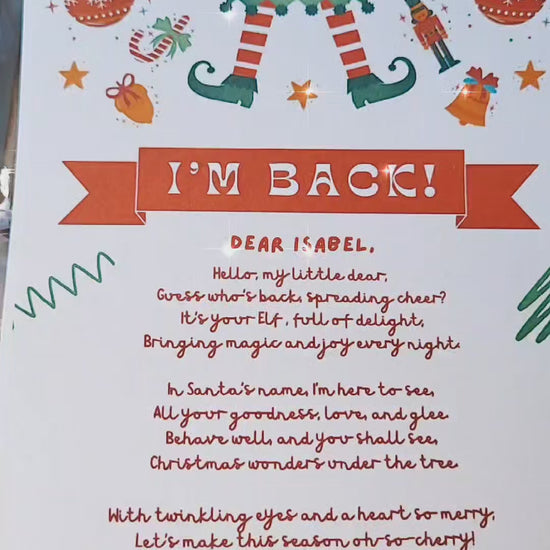 I'M BACK!
DEAR ISABEL,
Hello, my little dear,
Guess who's back, spreading cheer?
It's your Elf, full of delight,
Bringing magic and joy every night.
In Santa's name, I'm here to see,
All your goodness, love, and glee.
Behave well, and you shall see,
Christmas wonders under the tree.
With twinkling eyes and a heart so merry,
Let's make this season oh-so-cherry!